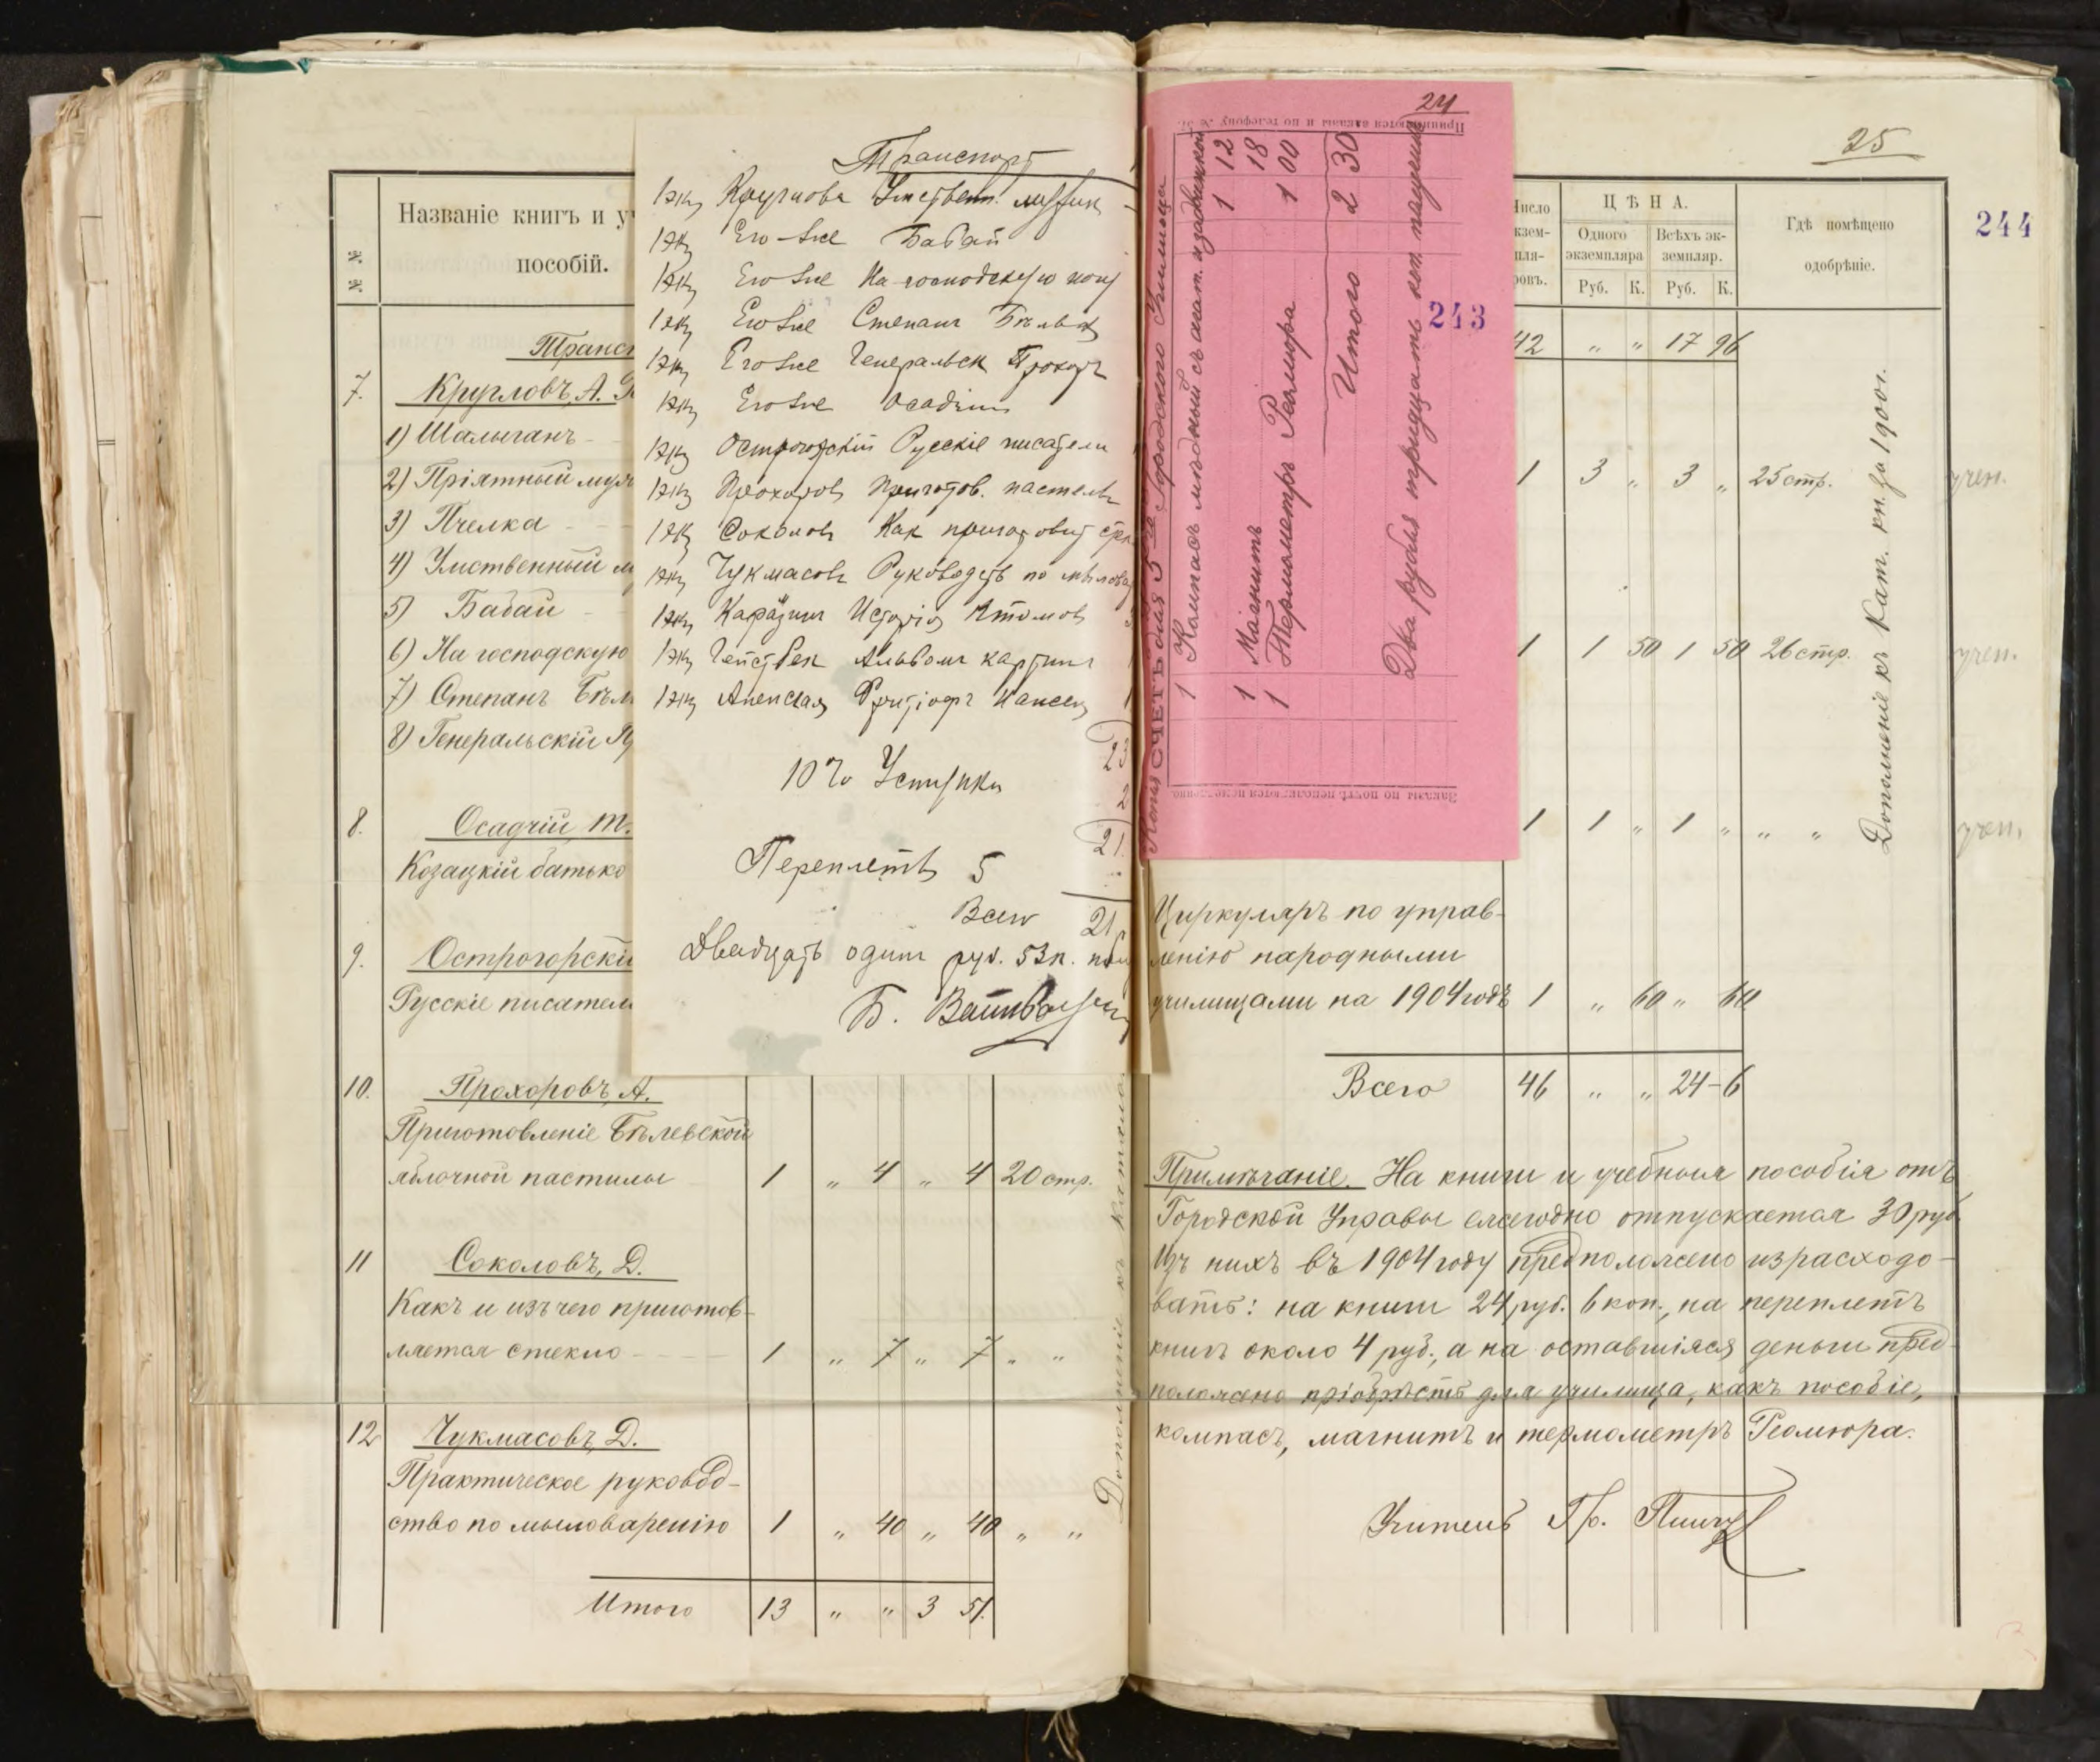 № №
Названіе книгъ и у
пособій.
Транс
7. Кругловъ, А.
1) Шалыганъ
2) Пріятный мул
3) Пчелка
4) Умственный м
5) Бабай
6) На господскую
7) Степанъ Бѣл
8) Генеральскій П
8. Осадчій, Т.
Козацкій батько
9. Острогорскі
Русскіе писател
10. Прохоровъ, А.
Приготовленіе Бѣлевской
яблочной пастилы 1 „ 4 „ 4 20 стр.
11 Соколовъ, Д.
Какъ и изъ чего приготов-
ляется стекло 1 „ 7 „ 7 „ „
12 Чукмасовъ, Д.
Практическое руковод-
ство по мыловаренію 1 „ 40 „ 40 „ „
Итого 13 „ „ 3 51.
Дополненіе къ Каталог
Транспорт
1 экз Круглова Умственн.
1 экз Его-же Бабай
1 экз Его же На господскую
1 экз Его же Степанъ
1 экз Его же Генеральск
1 экз Его же
1 экз Острогорскій Русскіе писатели
1 экз Прохоровъ Приготов. пастилы
1 экз Соколовъ Какъ приготовит
1 экз Чукмасовъ Руководств по мылова
1 экз Каразинъ Исторія
1 экз Альбомъ картинъ
1 экз Фритіофъ Нансен
23
10% Уступки 2
21
Переплетъ 5
Всего 21
Двадцать одинъ руб. 53 к.
24
Принимаются заказы и по телефону
Копія СЧЕТЪ для 5го Городского Училища
1 Компасъ мѣдный съ агат. и задвижкой 1 12
1 Магнитъ 18
1 Термометръ Реомюра 1 00
Итого 2 30
Два рубля тридцать коп.
Заказы по почтѣ исполняются немедленно
243
25
244
Число
экзем-
пля-
ровъ.
ЦѢНА.
Одного
экземпляра
Всѣхъ эк-
земпляр.
Руб. К. Руб. К.
Гдѣ помѣщено
одобрѣніе.
42 „ „ 17 96
1 3 „ 3 „ 25 стр. учен.
1 1 50 1 50 26 стр. учен.
1 1 „ 1 „ „ „ учен.
Дополненіе къ Кат. кн. за 1900 г.
Циркуляръ по управ-
ленію народными
училищами на 1904 годъ 1 „ 60 „ 60
Всего 46 „ „ 24-6
Примѣчаніе. На книги и учебныя пособія отъ
Городской Управы ежегодно отпускается 30 руб.
Изъ нихъ въ 1904 году предположено израсходо-
вать: на книги 24 руб. 6 коп., на переплетъ
книгъ около 4 руб., а на оставшіяся деньги пред-
положено пріобрѣсть для училища, какъ пособіе,
компасъ, магнитъ и термометръ Реомюра.
Учитель